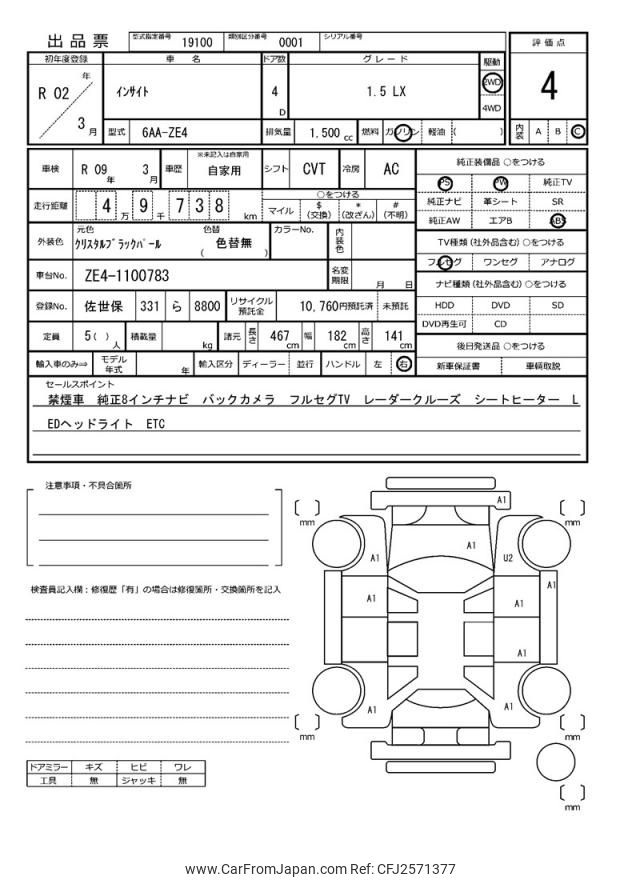 出品票 型式指定番号 19100 類別区分番号 0001 シリアル番号
評価点
4
内装 A B C
初年度登録 車名 ドア数 グレード 駆動
R 02 年 3 月 インサイト 4 D 1.5 LX 2WD 4WD
型式 6AA-ZE4 排気量 1.500 cc 燃料 ガソリン 軽油 ( )
車検 R 09 年 3 月 車歴 ※未記入は自家用 自家用 シフト CVT 冷房 AC
走行距離 4 万 9 千 7 3 8 km
○をつける
マイル $(交換) *(改ざん) #(不明)
外装色 元色 クリスタルブラックパール 色替 ( 色替無 ) カラーNo. 内装色
車台No. ZE4-1100783 名変期限 月 日
登録No. 佐世保 331 ら 8800 リサイクル預託金 10,760円預託済 未預託
定員 5( ) 人 積載量 kg 諸元 長さ 467 cm 幅 182 cm 高さ 141 cm
輸入車のみ⇒ モデル年式 年 輸入区分 ディーラー 並行 ハンドル 左 右
純正装備品 ○をつける
PS PW 純正TV
純正ナビ 革シート SR
純正AW エアB ABS
TV種類 (社外品含む) ○をつける
フルセグ ワンセグ アナログ
ナビ種類 (社外品含む) ○をつける
HDD DVD SD
DVD再生可 CD
後日発送品 ○をつける
新車保証書 車輌取説
セールスポイント
禁煙車 純正8インチナビ バックカメラ フルセグTV レーダークルーズ シートヒーター L
EDヘッドライト ETC
注意事項・不具合箇所
検査員記入欄:修復歴「有」の場合は修復箇所・交換箇所を記入
ドアミラー キズ ヒビ ワレ
工具 無 ジャッキ 無
A1
mm
mm
A1
A1
U2
A1
A1
A1
A1
A1
A1
mm
mm
mm
www.CarFromJapan.com Ref: CFJ2571377